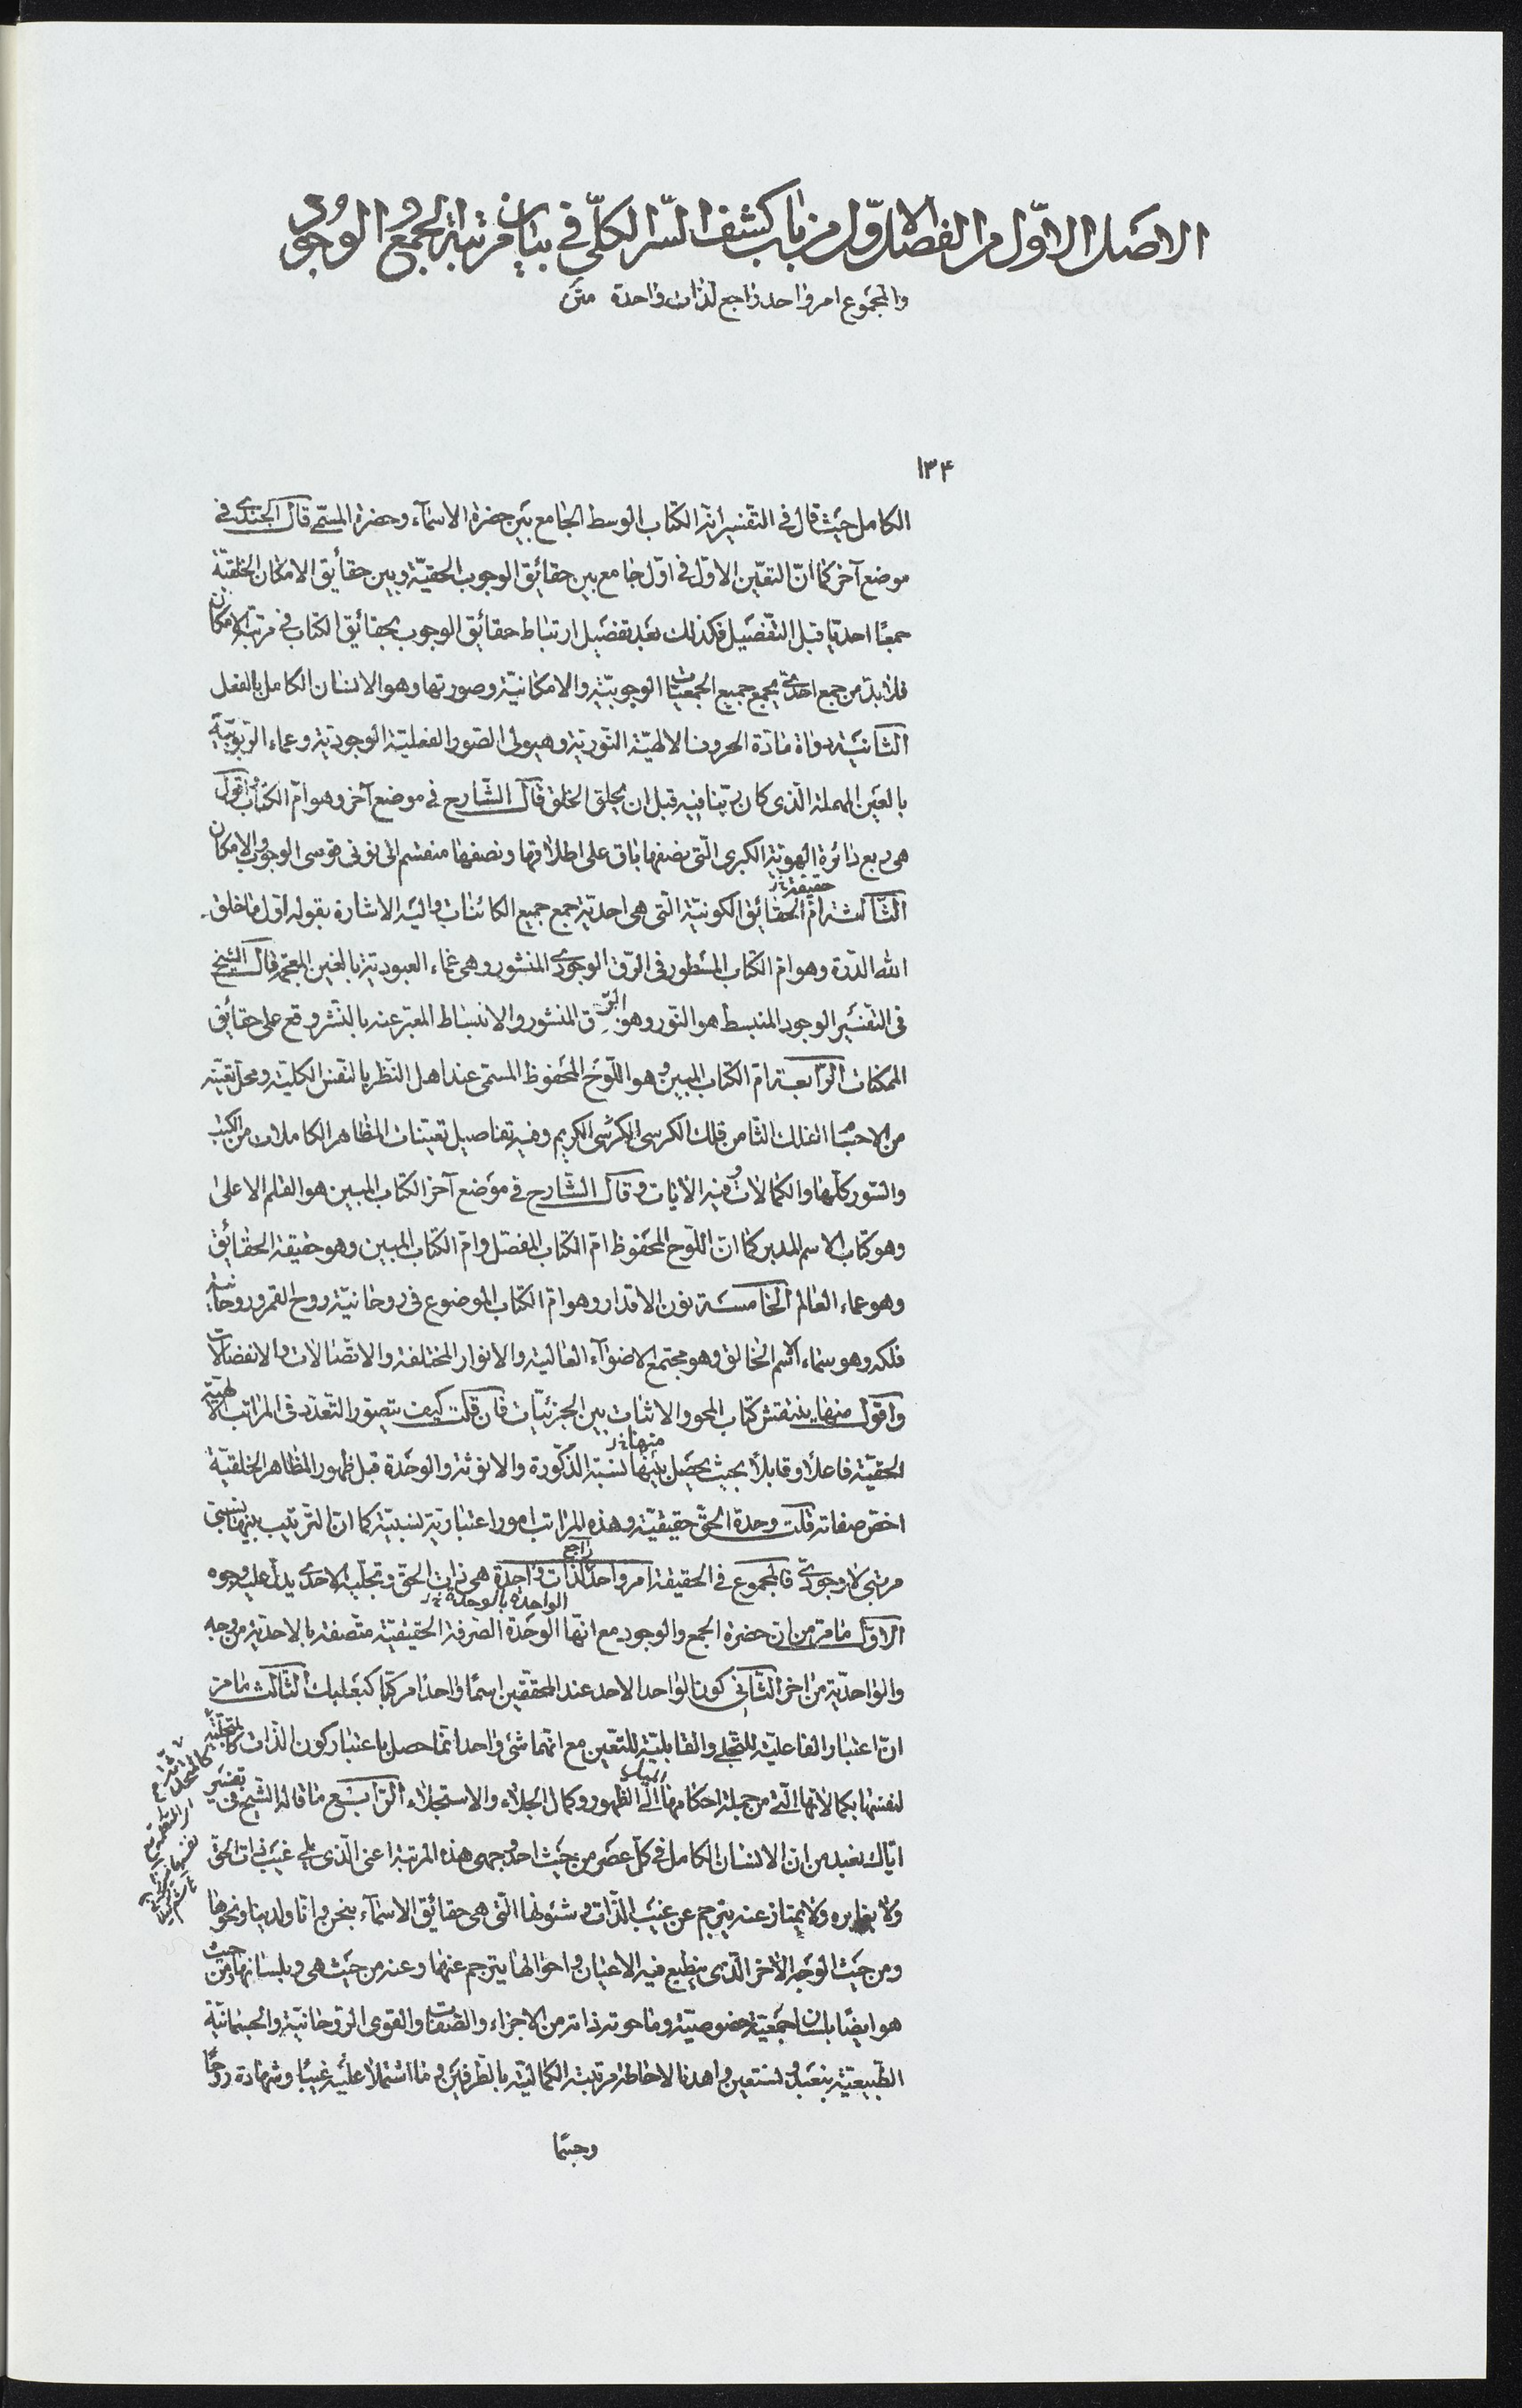 الاصل الاوّل من الفصل الاوّل من باب كشف السّر الكلّى فى بيان مرتبة الجمع و الوجود
والمجموع امر واحد راجع لذات واحدة متن
١٣۴
الكامل حيث قال فى التفسير انّه الكتاب الوسط الجامع بين حضرة الاسمآء وحضرة المسمّى قال الجندى فى
موضع آخر كما انّ التعيّن الاوّل فى اوّل جامع بين حقائق الوجوب الحقيّة وبين حقائق الامكان الخلقيّة
جمعًا احديّا قبل التفصيل فكذلك بعد تفضيل ارتباط حقائق الوجوب بحقائق الكتاب فى مرتبة الامكان
فلابدّ من جمع احدىّ يجمع جميع الجمعيات الوجوبيّة والامكانيّة وصورتها وهو الانسان الكامل بالفعل
الثانية دواة مادّة الحروف الالهيّة النوريّة وهيولى الصّور الفعليّة الوجوديّة وعماء الربوبيّة
بالعين المهملة الّذى كان ربّنا فيه قبل ان يخلق الخلق قال الشّارح فى موضع آخر وهو امّ الكتاب واقول
هى ربع دائرة الهويّة الكبرى الّتى نصفها باق على اطلاقها ونصفها منقسم الى نونى قوسى الوجوب والامكان
حقيقة خ‌ر
الثّالثة امّ الحقائق الكونيّة الّتى هى احديّة جمع جميع الكائنات واليه الاشارة بقوله اوّل ما خلق
الله الدّرة وهو امّ الكتاب المسطور فى الرّق الوجودى المنشور وهى غماء العبوديّة بالغين المعجمة قال الشيخ
فى التفسير الوجود المنبسط هو النّور وهو الرّق المنشور والانبساط المعبّر عنه بالنشر وقع على حقائق
الممكنات الرّابعة امّ الكتاب المبين وهو اللّوح المحفوظ المسمّى عند اهل النّظر بالنفس الكليّة ومحلّ تعيّنه
من الاجسام الفلك الثّامن فلك الكرسى الكرسى الكريم وفيه تفاصيل تعيّنات المظاهر الكاملات من الكتب
والسّور كلّها والكمالات وفيه الآيات وقال الشّارح فى موضع آخر الكتاب المبين هو القلم الاعلى
وهو كتاب الاسم المدبّر كما انّ اللّوح المحفوظ امّ الكتاب المفصّل وامّ الكتاب المبين وهو حقيقة الحقائق
وهو عماء العالم الخامسة نون الاقدار وهو امّ الكتاب الموضوع فى روحانيّة روح القمر وروحانيّة
فلكه وهو سماء الاسم الخالق وهو مجتمع الاضوآء العالية والانوار المختلفة والاتّصالات والانفصالات
واقول منها ينتقش كتاب المحو والاثبات بين الجزئيّات فان قلت كيف يتصوّر التعدّد فى المراتب الالهيّة
منها خ‌ر
الحقيّة فاعلًا وقابلًا بحيث يحصل بينها نسبة الذّكورة والانوثة والوحدة قبل ظهور المظاهر الخلقيّة
اخصّ صفاته قلت وحدة الحقّ حقيقيّة وهذه المراتب امور اعتباريّة نسبيّة كما انّ الترتيب بينها نسبىّ
راجع
مرتبى لا وجودىّ فالمجموع فى الحقيقة امر واحد لذات واحدة هى ذات الحقّ وتجلّيه الاحدى يدلّ عليه وجوه
الواحدة بالوحدة خ‌ر
الاوّل ما مرّ من انّ حضرة الجمع والوجود مع انّها الوحدة الصّرفة الحقيقيّة متّصفة بالاحديّة من وجه
والواحديّة من اخر الثّانى كون الواحد الاحد عند المحقّقين اسمًا واحدًا مركبًا كبعلبك الثّالث ما مرّ
انّ اعتبار الفاعليّة للتّجلى والقابليّة للتّعين مع انّهما شئ واحد انّما حصل باعتبار كون الذّات كالمتجلّية
لنفسها بكمالاتها الّتى من جملة احكامها الى الظهور وكمال الجلاء والاستجلاء الرّابع ما قاله الشّيخ فى تفسير
ايّاك نعبد من انّ الانسان الكامل فى كلّ عصر من حيث احد وجهى هذه المرتبة اعنى الّذى يلى غيب ذات الحقّ
ولا يغايره ولا يمتاز عنه يترجم عن غيب الذّات وشئونها الّتى هى حقائق الاسمآء بنحن وانّا ولدينا ونحوها
ومن حيث الوجه الآخر الّذى ينطبع فيه الاعيان واحوالها يترجم عنها وعنه من حيث هى وبلسانها ومن حيث
هو ايضًا بلسان جمعيّة خصوصيّته وما حوته ذاته من الاجزاء والصّفات والقوى الروحانيّة والجسمانيّة
الطّبيعيّة بنعبد ونستعين واهدنا لاحاطة مرتبته الكماليّة بالطّرفين وما اشتملا عليه غيبًا وشهادة روحًا
وجسمًا